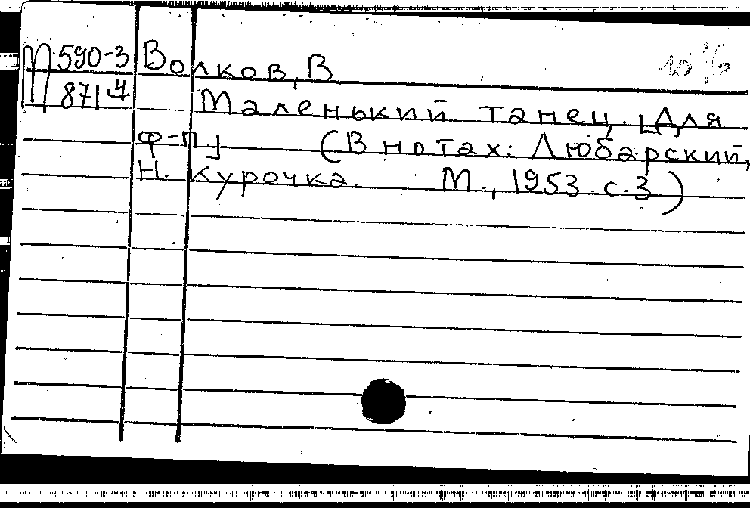 М 590-3 Волков, В.
871 Маленький танец. [Для
ф-п.] (В нотах: Любарский,
Н. Курочка. М., 1953. с. 3)